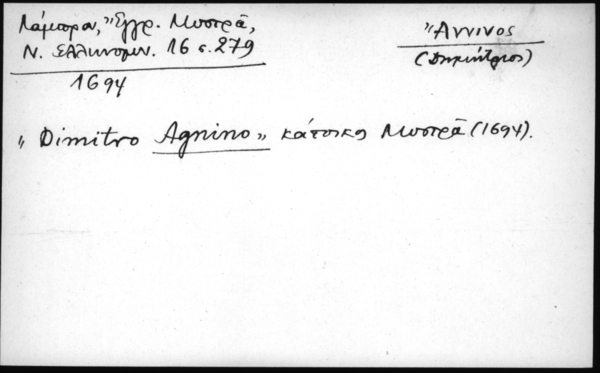 Λάμπρου, Ἔγγρ. Μυστρᾶ,
Ν. Ἑλληνομν. 16 σ. 279
1694
Ἄννινος
(Δημήτριος)
„ Dimitro Agnino „ κάτοικος Μυστρᾶ (1694).